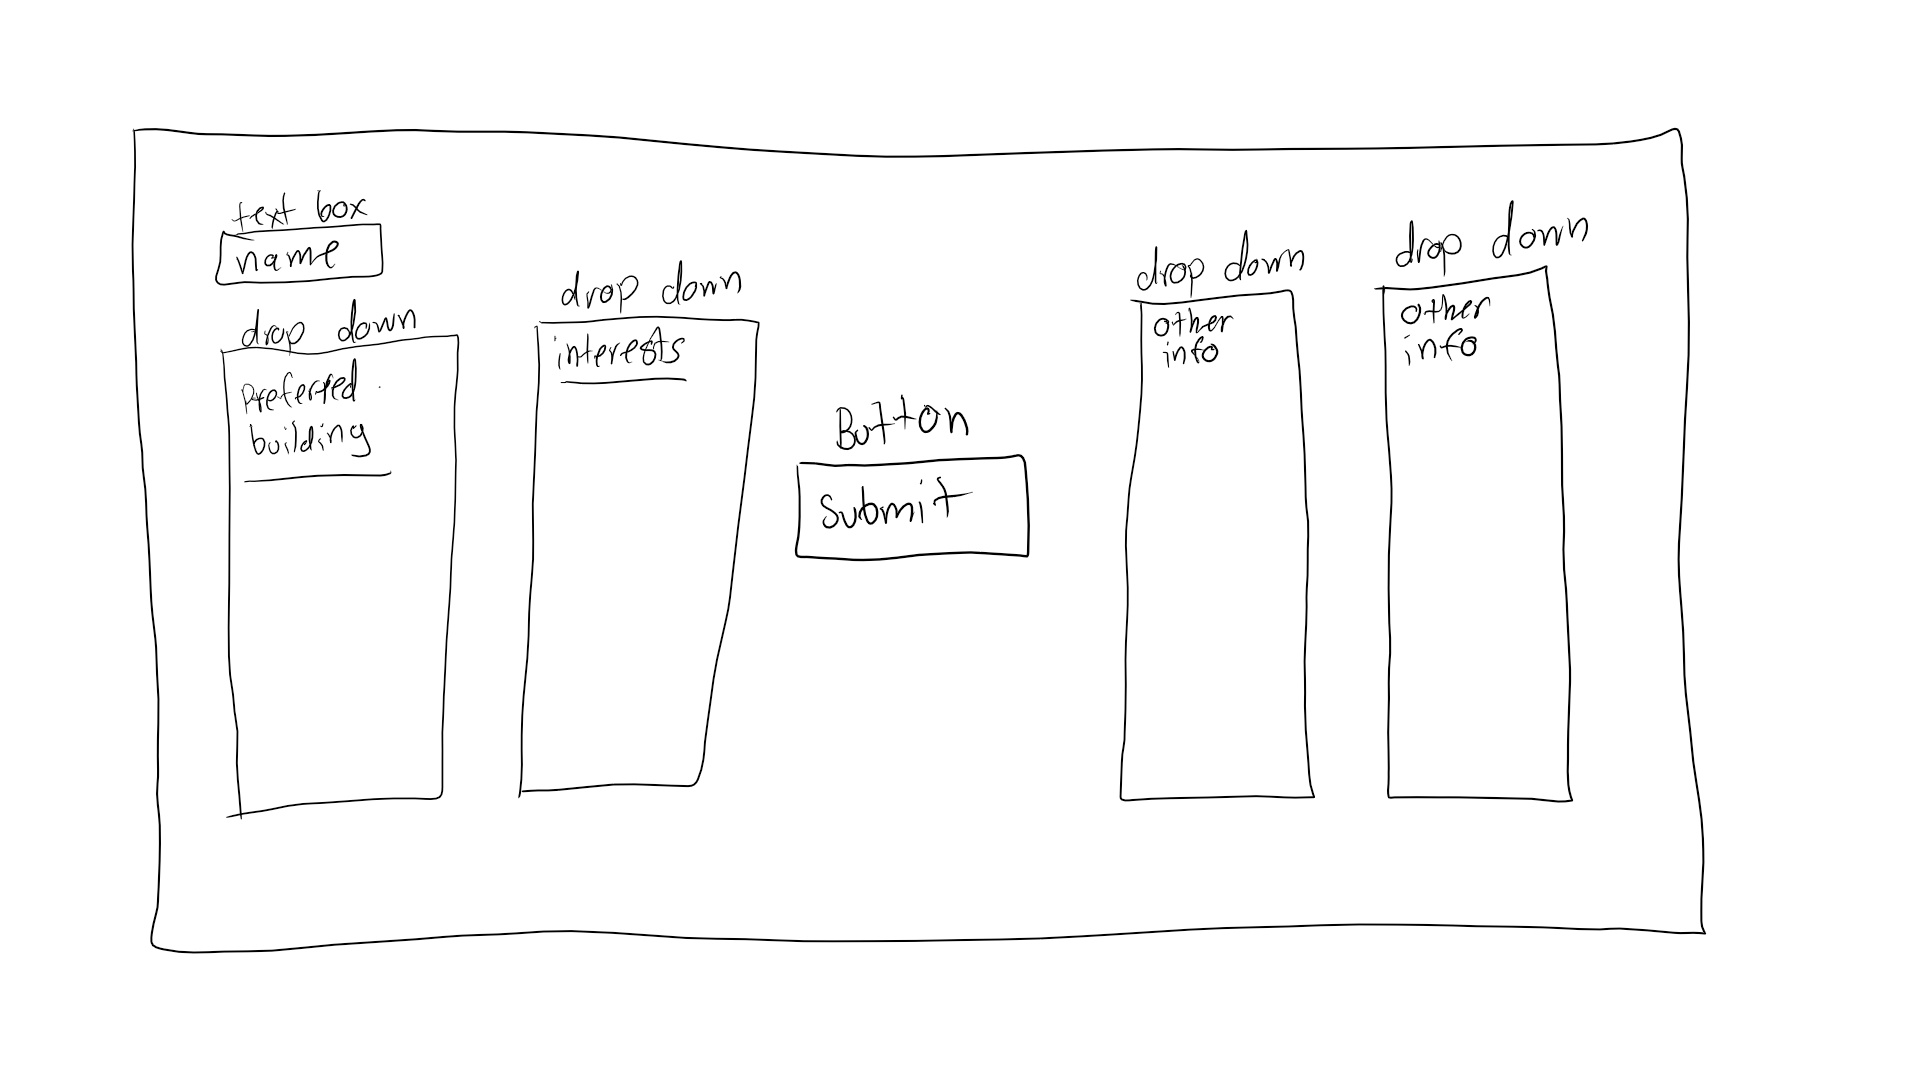 text box
name
drop down
Preferred
building
drop down
interests
Button
Submit
drop down
other
info
drop down
other
info